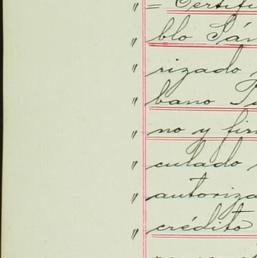 " = Certifi
" blo Sán
" rizado
" bano
" no y fir
" culado
" autoriza
" crédito